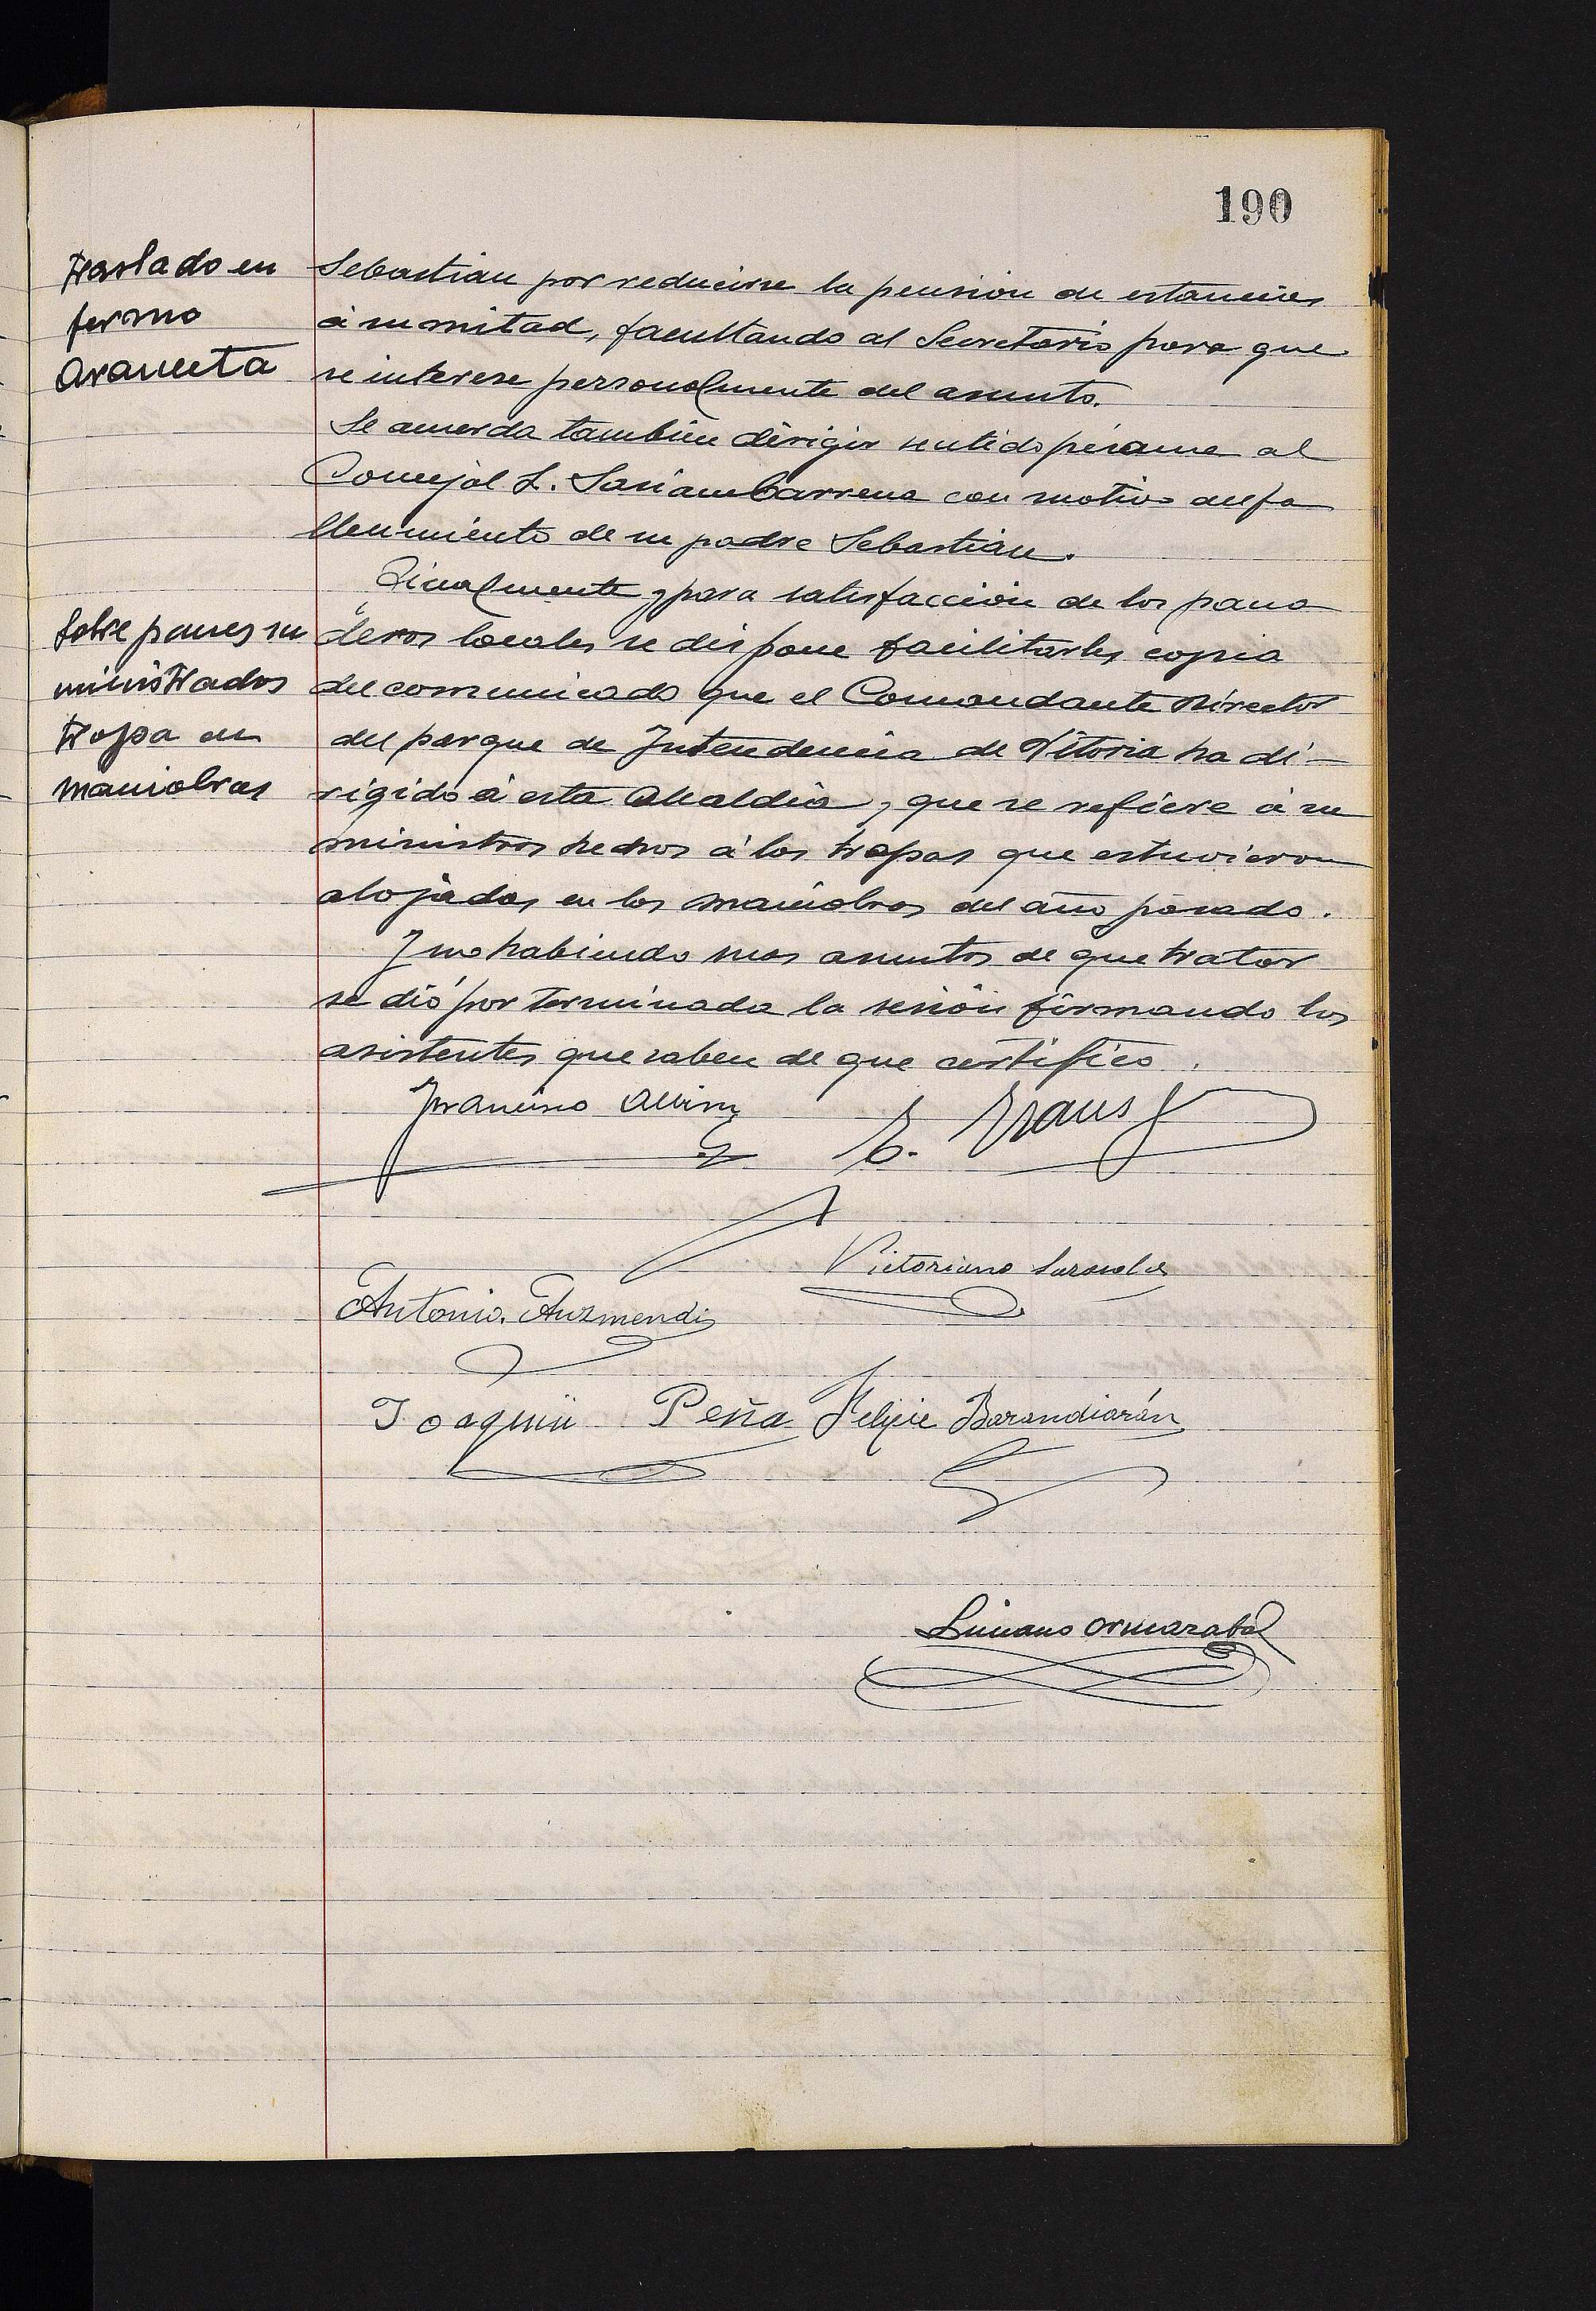 190
Traslado en
fermo
Araneeta
Sebastian por reducirse la pension de estancias
á su mitad, facultando al Secretario para que
se interese personalmente del asunto.
Se acuerda tambien dirigir sentido pésame al
Concejal L. Sasiambarrena con motivo del fa
llecimiento de su padre Sebastian.
Finalmente y para satisfacción de los pana
Sobre panes su
ministrados
tropa en
maniobras
deros locales se dispone facilitarles copia
del comunicado que el Comandante Director
del parque de Intendencia de Vitoria ha di-
rigido á esta Alcaldia, que se refiere á su
ministros hechos á las tropas que estuvieron
alojadas en las maniobras del año pasado.
Y no habiendo mas asuntos de que tratar
se dió por terminada la sesión firmando los
asistentes que saben de que certifico.
Francisco
E.
Victoriano
Antonio Auzmendi
Joaquin Peña Felipe Barandiarán
Luciano Ormazabal